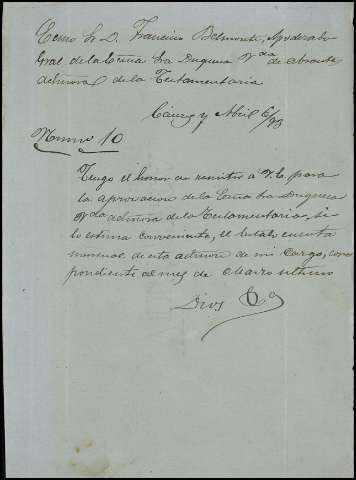 Ecmo Sr D. Francisco Belmonte, Apoderado
Gral de la Ecma Sra Duquesa Vda de Abrantes
admora de la Testamentaria
Abril 6/93
Numo 10
Tengo el honor de remitir a V. E. para
la aprovacion de la Ecma Sra Duquesa
Vda admora de la Testamentaria, si
lo estima conveniente, el Estado cuenta
mensual de esta admon de mi cargo, corres
pondiente al mes de Marzo ultimo
Dios Ea